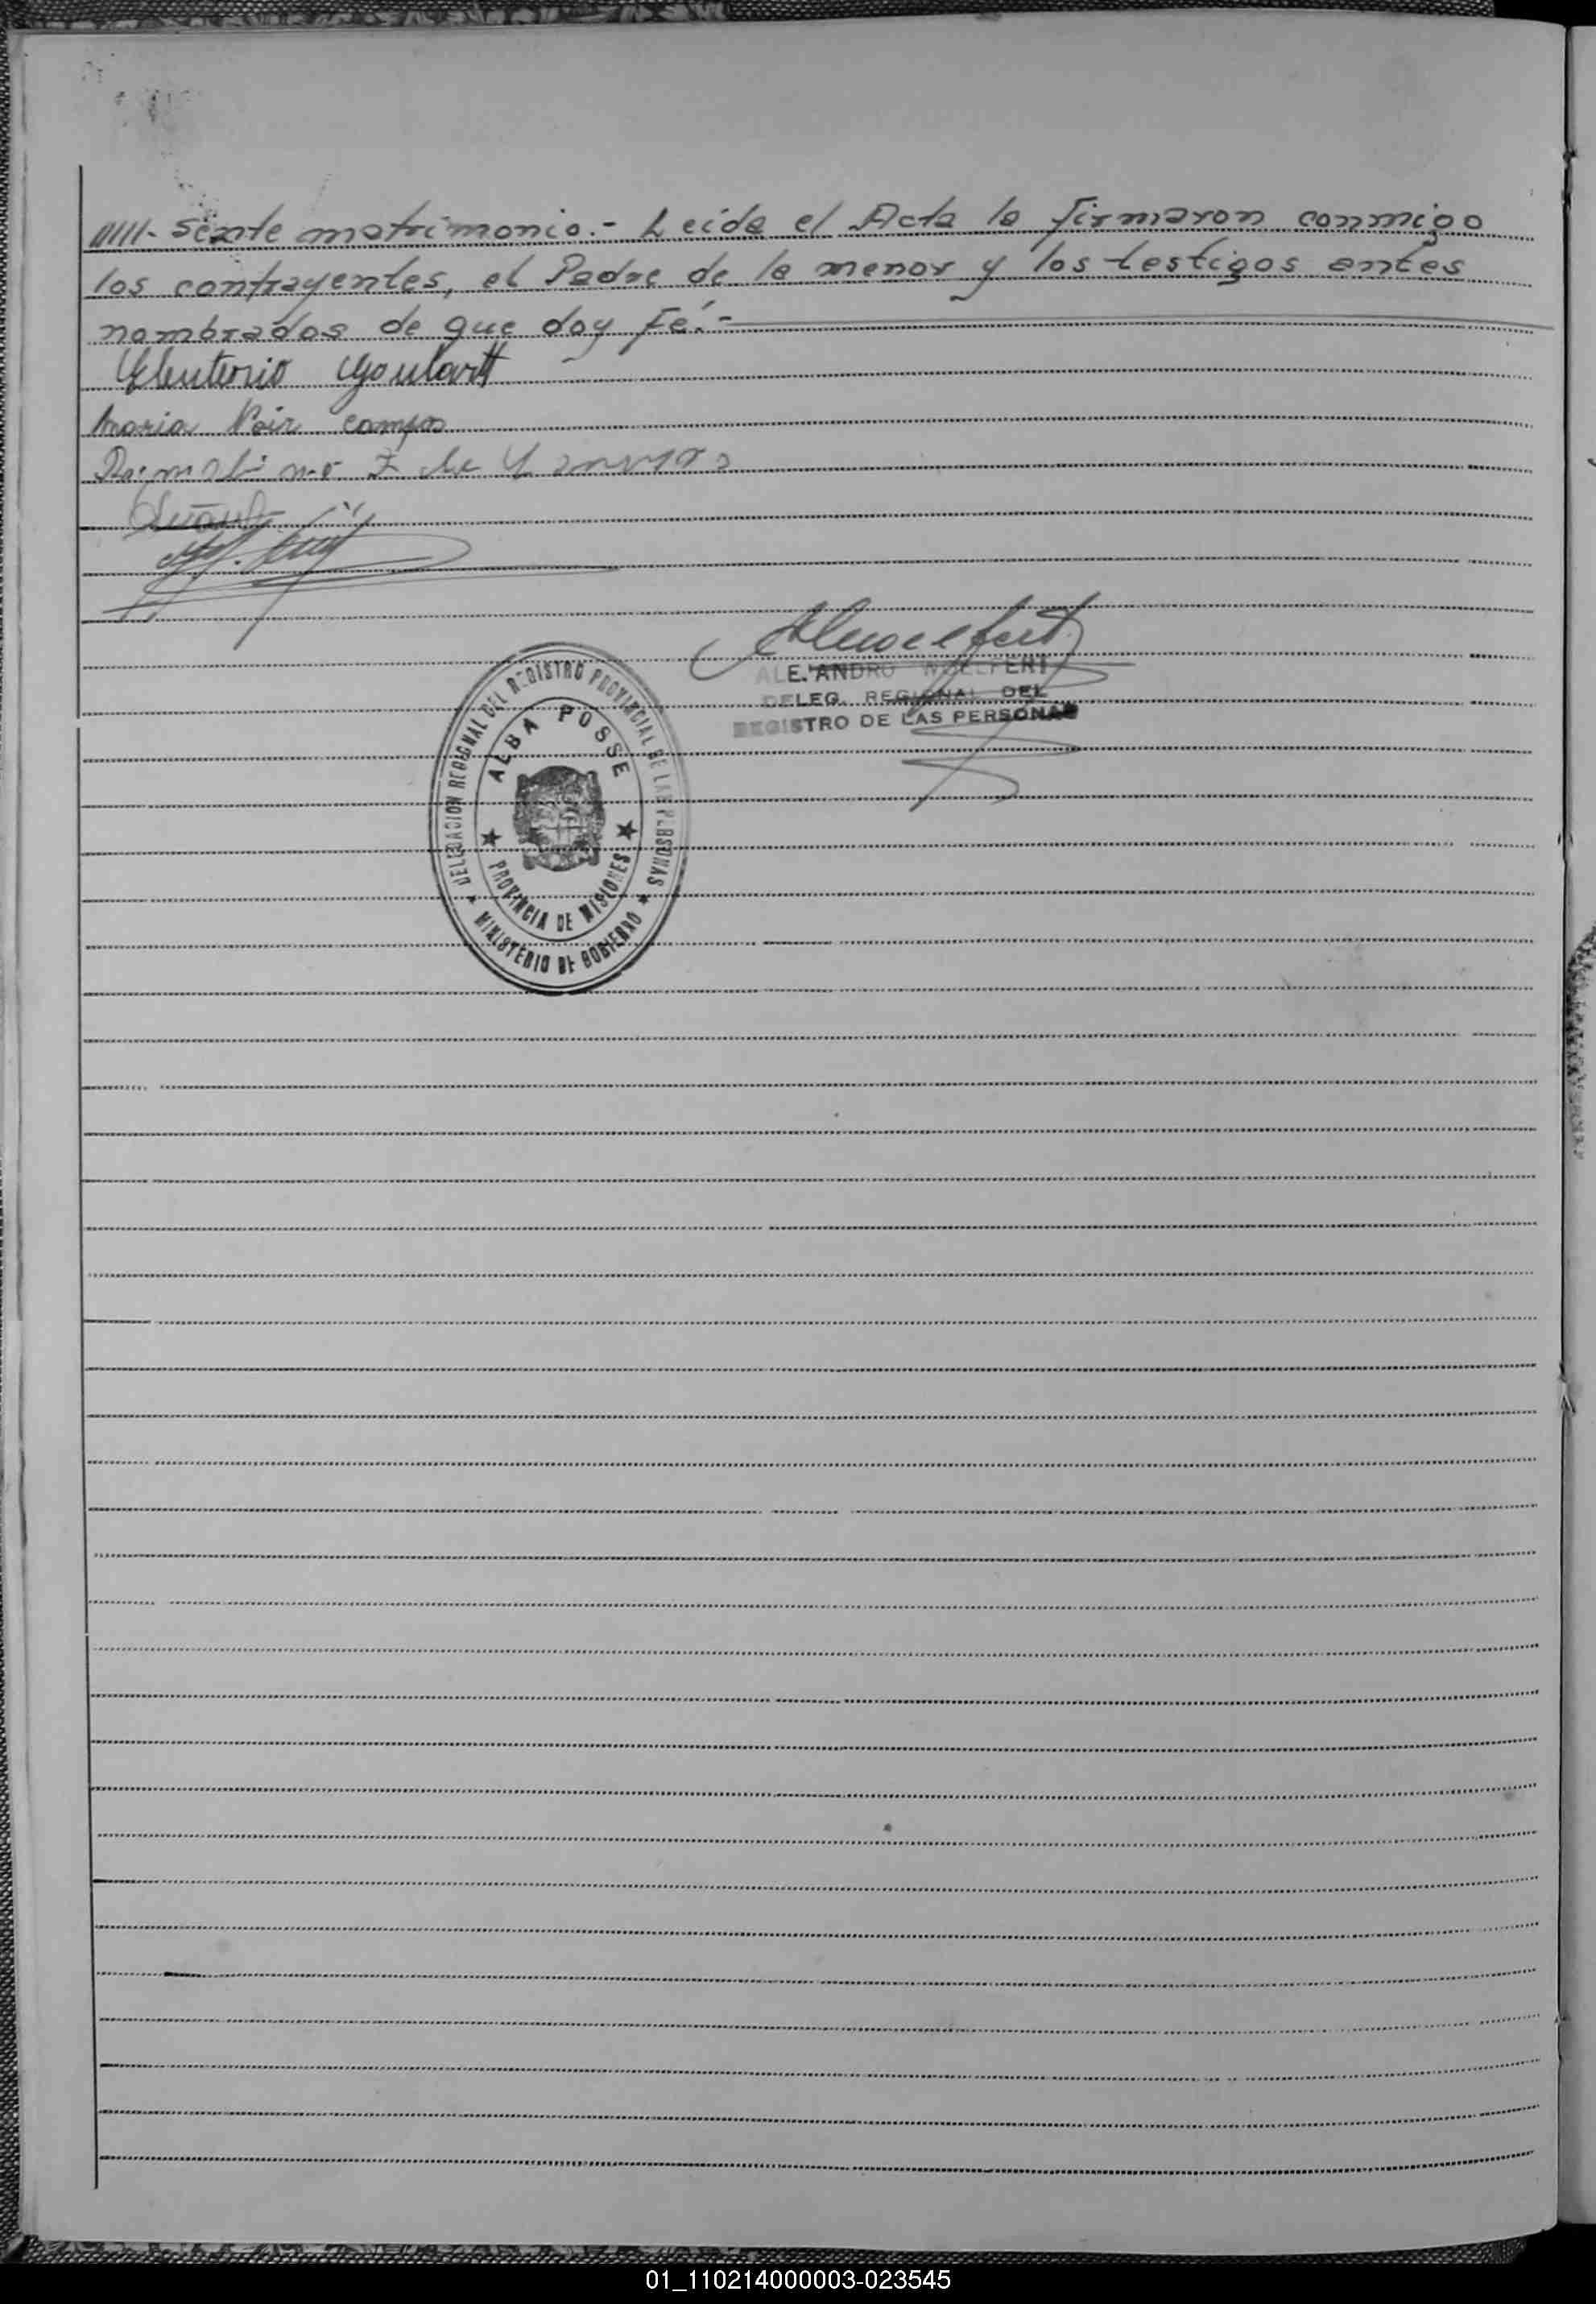 /////- sente matrimonio.- Leida el Acta la firmaron conmigo
los contrayentes, el Padre de la menor y los testigos antes
nombrados de que doy Fé.-
Eleuterio Goulartt
Maria Noir campos
ALEJANDRO WOELFERT
DELEG. REGIONAL DEL
REGISTRO DE LAS PERSONAS
DELEGACION REGIONAL DEL REGISTRO PROVINCIAL DE LAS PERSONAS
★ MINISTERIO DE GOBIERNO ★
ALBA POSSE
★ PROVINCIA DE MISIONES ★
01_110214000003-023545